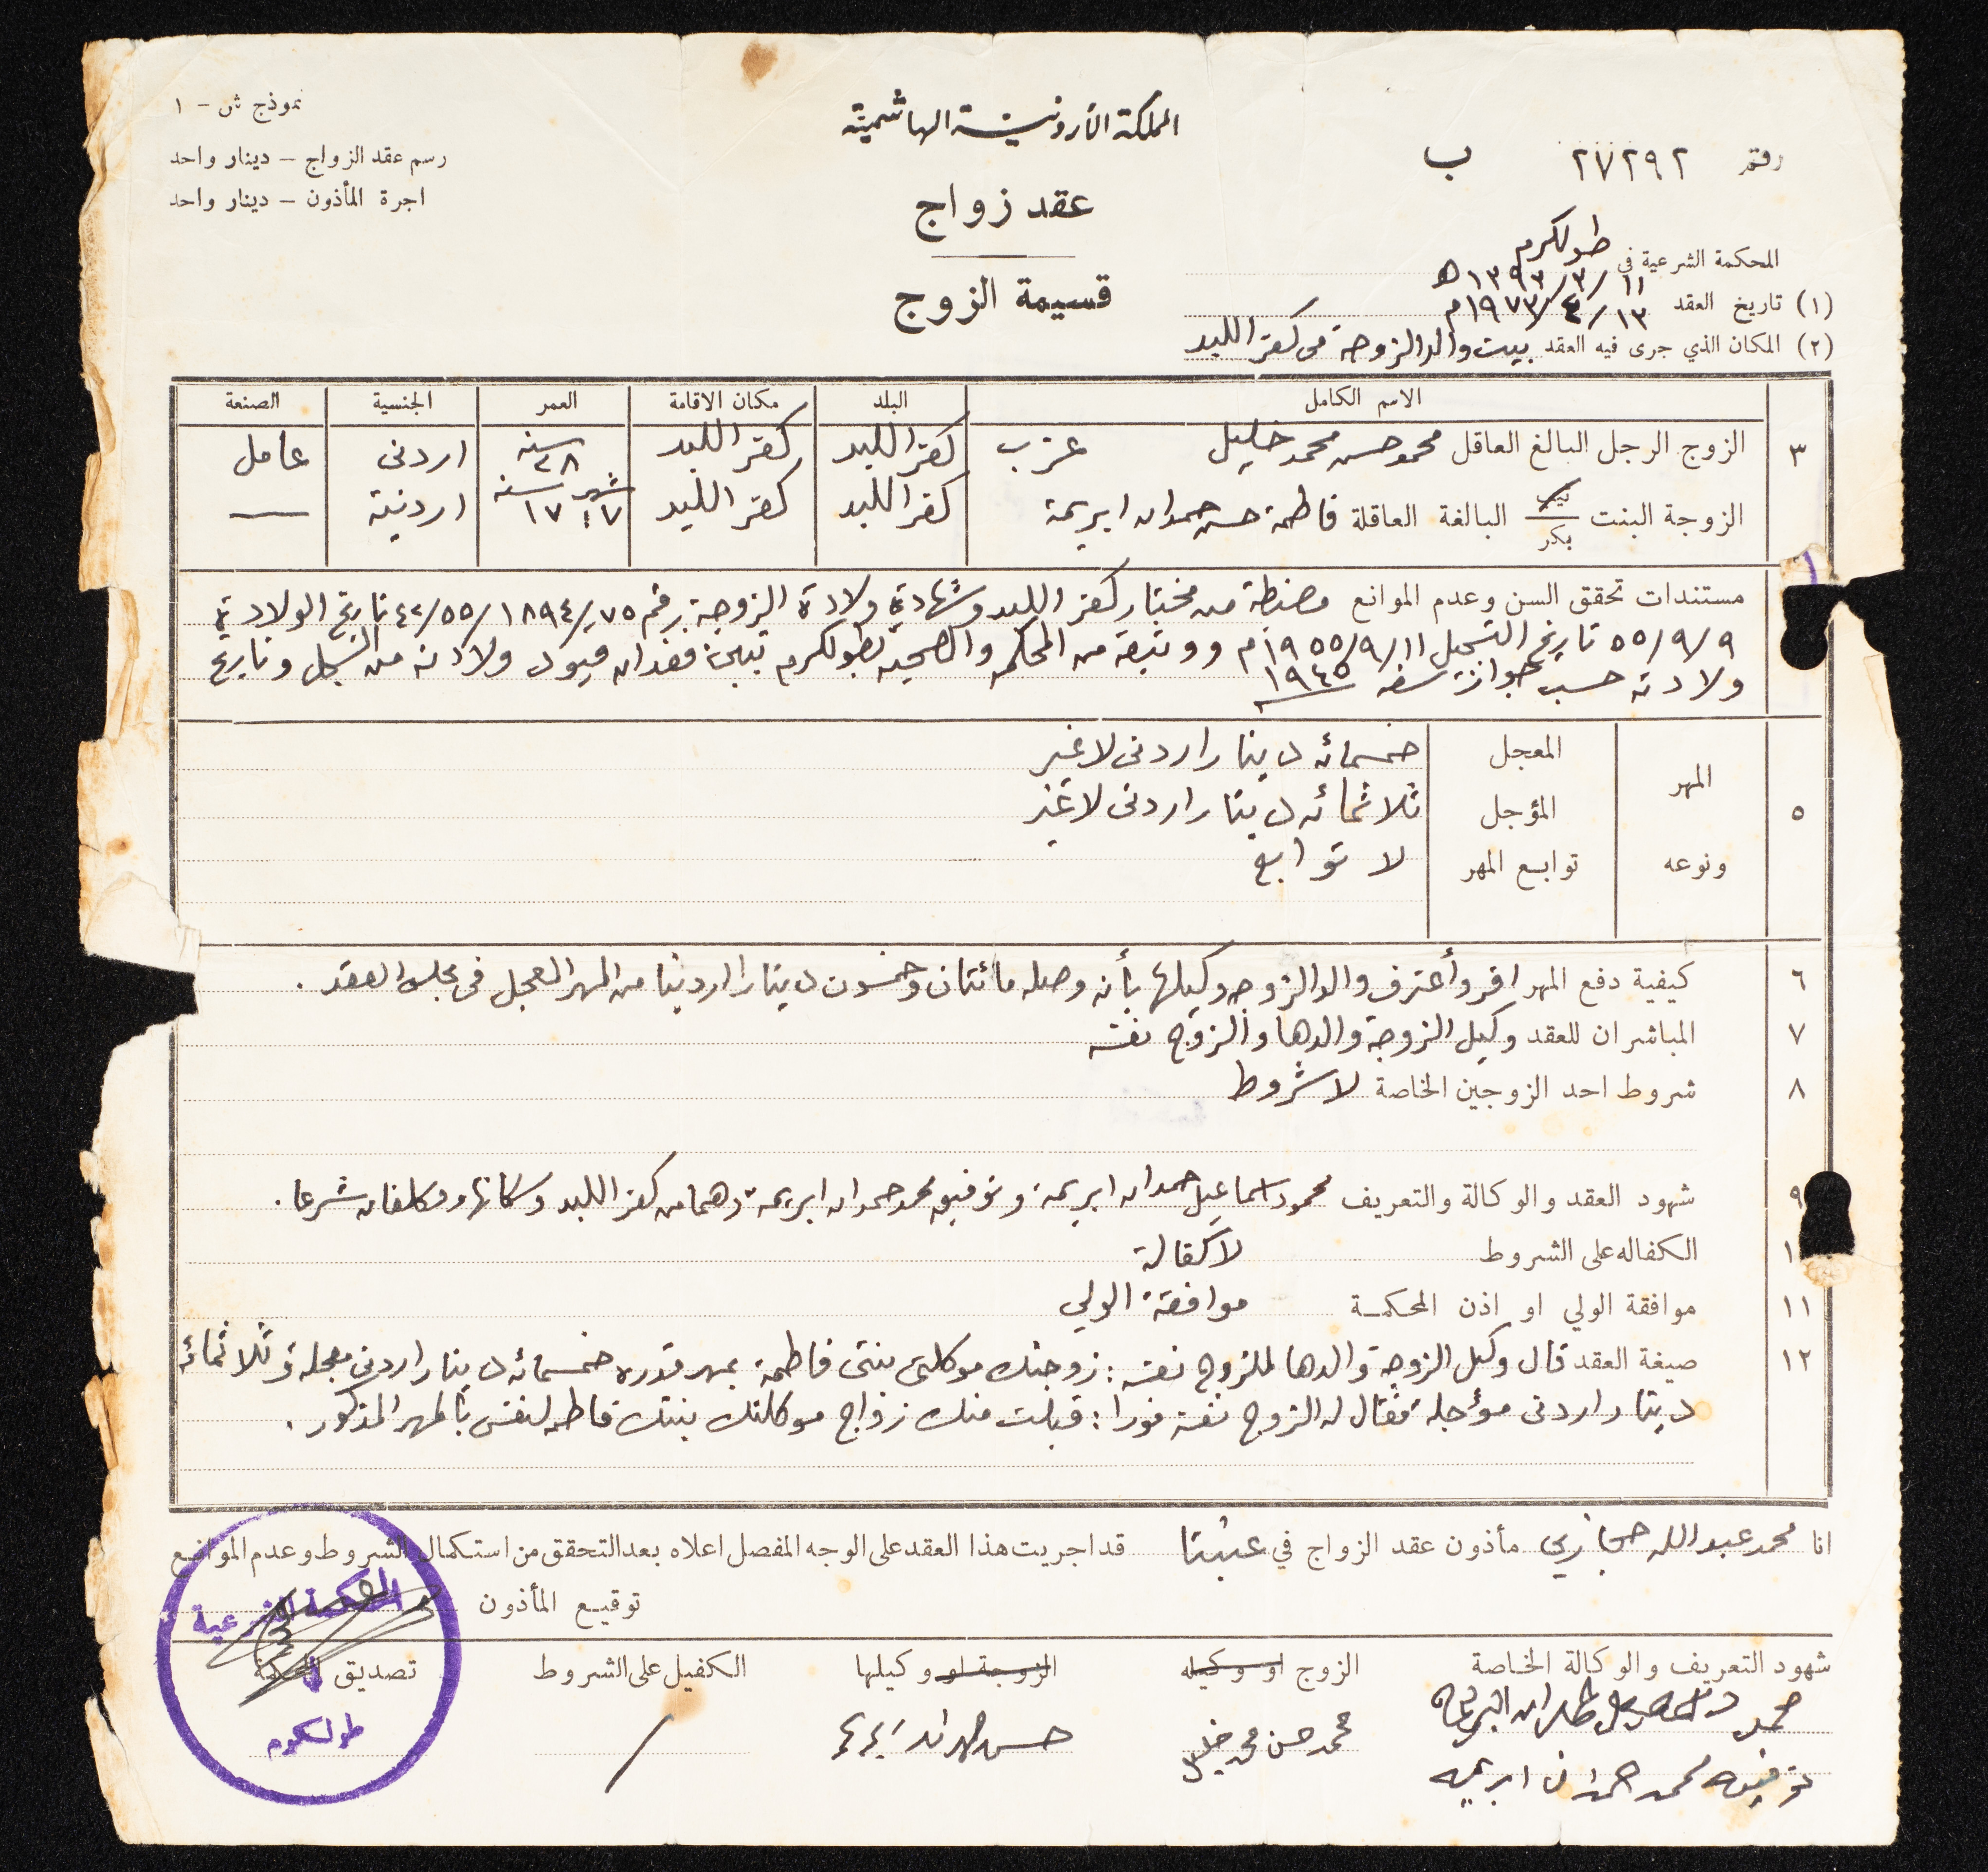 نموذج ش - ١
رسم عقد الزواج - دينار واحد
اجرة المأذون - دينار واحد
المملكة الأردنية الهاشمية
عقد زواج
قسيمة الزوج
رقم ٢٧٢٩٢ ب
المحكمة الشرعية في طولكرم
١١/٣/١٣٩٣ه
(١) تاريخ العقد ١٣/٤/١٩٧٣م
(٢) المكان الذي جرى فيه العقد بيت والد الزوجة في كفر اللبد
الاسم الكامل البلد مكان الاقامة العمر الجنسية الصنعة
٣ الزوج الرجل البالغ العاقل محمد حسن محمد خليل عزب كفر اللبد كفر اللبد ٢٨ سنه اردني عامل
الزوجة البنت ثيب بكر البالغة العاقلة فاطمة حسن حمدان ابريمة كفر اللبد كفر اللبد ٧ شهر ١٧ سنه اردنية —
مستندات تحقق السن وعدم الموانع مضبطة من مختار كفر اللبد وشهادة ولادة الزوجة رقم ٤٢/٥٥/١٨٩٤/٧٥ تاريخ الولادة في
٥٥/٩/٩ تاريخ التسجيل ١١/٩/١٩٥٥م ووثيقة من المحكمة والصحية بطولكرم تبين فقدان قيود ولادته من السجل وتاريخ
ولادته حسب جواز سفره ١٩٤٥
٥ المهر ونوعه
المعجل خمسمائه دينار اردني لا غير
المؤجل ثلاثمائه دينار اردني لا غير
توابع المهر لا توابع
٦ كيفية دفع المهر اقر وأعترف والد الزوجه وكيلها بأنه وصله مائتان وخمسون دينارا اردنيا من المهر المعجل في مجلس العقد .
٧ المباشران للعقد وكيل الزوجة والدها والزوج نفسه
٨ شروط احد الزوجين الخاصة لا شروط
٩ شهود العقد والوكالة والتعريف محمود اسماعيل حمدان ابريمة وتوفيق محمد حمدان ابريمة وهما من كفر اللبد وسكانها ومكلفان شرعا .
١ الكفاله على الشروط لا كفالة
١١ موافقة الولي او اذن المحكمة موافقة الولي
١٢ صيغة العقد قال وكيل الزوجة والدها للزوج نفسه : زوجتك موكلتي بنتي فاطمة بمهر قدره خمسمائه دينار اردني معجلة وثلاثمائه
دينار اردني مؤجلة فقال له الزوج نفسه فورا : قبلت منك زواج موكلتك بنتك فاطمه لنفسي بالمهر المذكور .
انا محمد عبد الله حجازي مأذون عقد الزواج في عنبتا قد اجريت هذا العقد على الوجه المفصل اعلاه بعد التحقق من استكمال الشروط وعدم الموانع
توقيع المأذون
المحكمة الشرعية
شهود التعريف والوكالة الخاصة الزوج او وكيله الزوجة او وكيلها الكفيل على الشروط تصديق
محمد حسن محمد خليل
توفيق محمد حمدان ابريمه
طولكرم